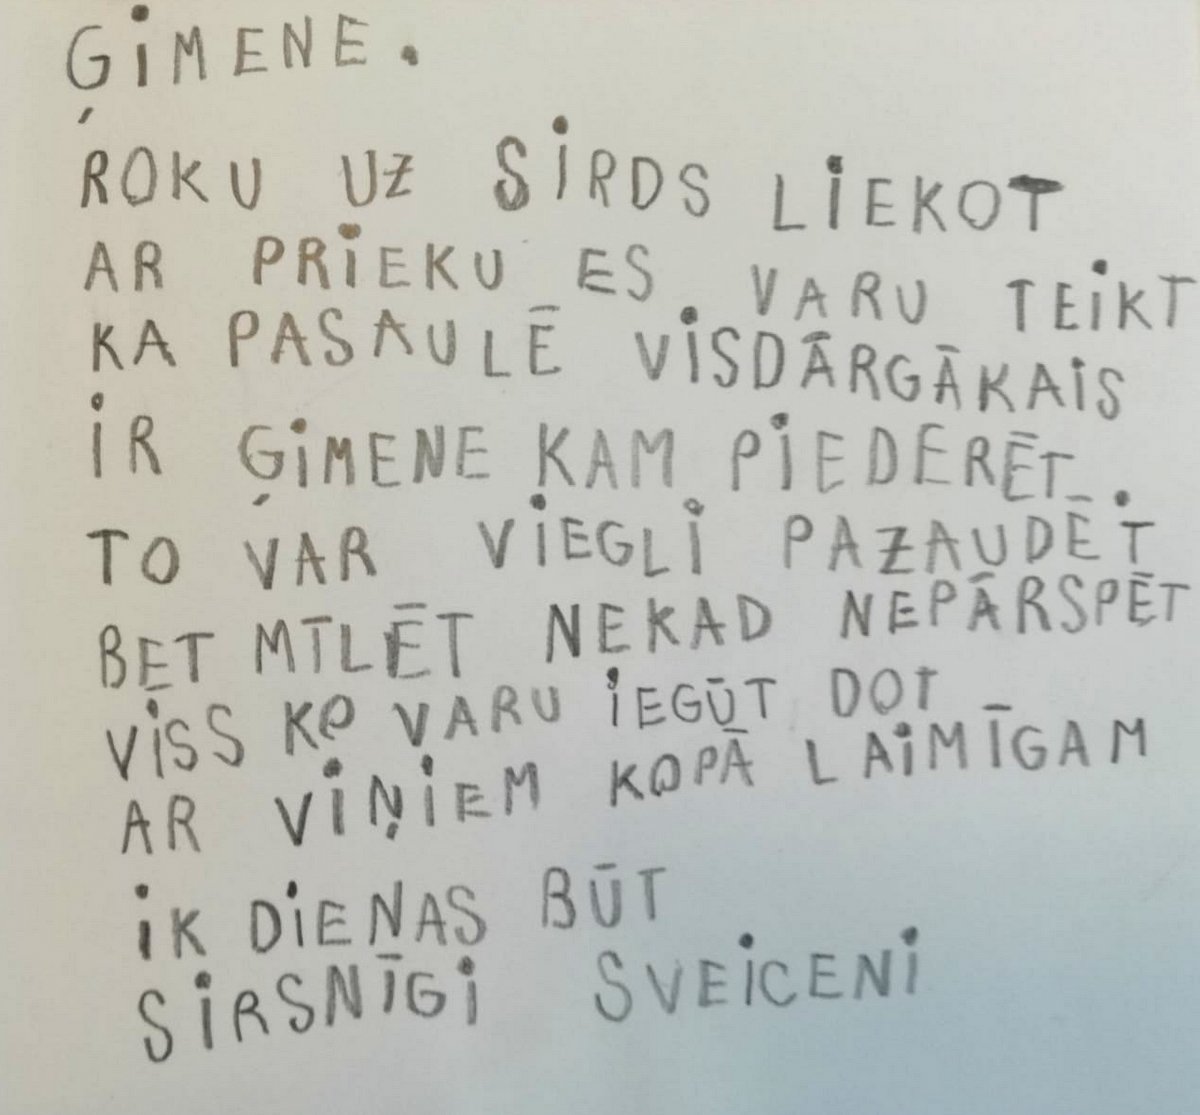 ĢiMENE.
ROKU UZ SiRDS LiEKOT
AR PRiEKU ES VARU TEiKT
KA PASAULĒ ViSDĀRGĀKAiS
iR ĢiMENE KAM PiEDERĒT.
TO VAR ViEGLi PAZAUDĒT
BET MĪLĒT NEKAD NEPĀRSPĒT
ViSS KO VARU iEGŪT DOT
AR ViŅiEM KOPĀ LAiMĪGAM
iK DiENAS BŪT
SiRSNĪGi SVEiCENi